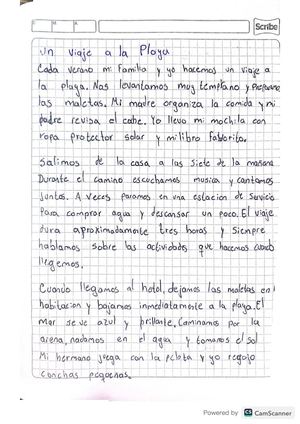 D M A Scribe
Un Viaje a la Playa
Cada Verano mi familia y yo hacemos un viaje a
la playa. Nos levantamos muy temprano y preparamos
las maletas. Mi madre organiza la comida y mi
padre revisa el coche. Yo llevo mi mochila con
ropa protector solar y mi libro faborito.
Salimos de la casa a las siete de la mañana
Durante el camino escuchamos musica y cantamos
juntos. A veces paramos en una estacion de servicio
para comprar agua y descansar un poco. El viaje
dura aproximadamente tres horas y siempre
hablamos sobre las actividades que hacemos cuando
llegemos.
Cuando llegamos al hotel, dejamos las maletas en l
habitacion y bajamos inmediatamente a la playa. El
mar se ve azul y brillante. Caminamos por la
arena, nadamos en el agua y tomamos el sol
Mi hermano juega con la pelota y yo recojo
conchas pequeñas.
Powered by CS CamScanner